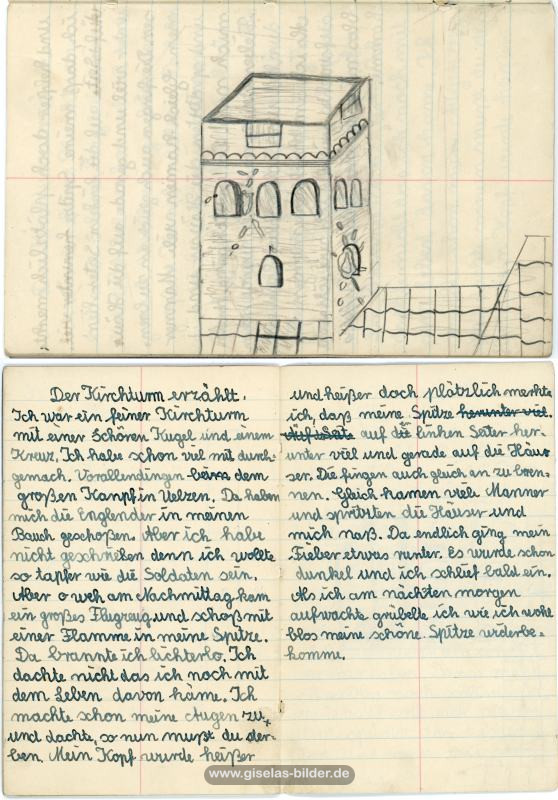 Der Kirchturm erzählt.
Ich war ein feiner Kirchturm
mit einer Schören Kugel und einem
Kreuz. Ich habe schon viel mit durch-
gemach. Vorallendingen beim dem
großen Kampf in Uelzen. Da haben
mich die Englender in meinen
Bauch geschoßen. Aber ich habe
nicht geschrieben denn ich wollte
so tapfer wie die Soldaten sein.
Aber o weh am Nachmittag kam
ein großes Flugzeug und schoß mit
einer Flamme in meine Spitze.
Da brannte ich lichterlo. Ich
dachte nicht das ich noch mit
dem Leben davon käme. Ich
machte schon meine Augen zu
und dachte, so nun mußt du ster-
ben. Mein Kopf wurde heißer
und heißer doch plötzlich merkte
ich, daß meine Spitze herunter viel.
auf die linken Seiter her-
unter viel und gerade auf die Häus
ser. Die fingen auch gleich an zu bren-
nen. Gleich kamen viele Männer
und spritzten die Häuser und
mich naß. Da endlich ging mein
Fieber etwas runter. Es wurde schon
dunkel und ich schlief bald ein.
Als ich am nächsten morgen
aufwachte grübelte ich wie ich wohl
blos meine schöne Spitze widerbe-
komme.
www.giselas-bilder.de